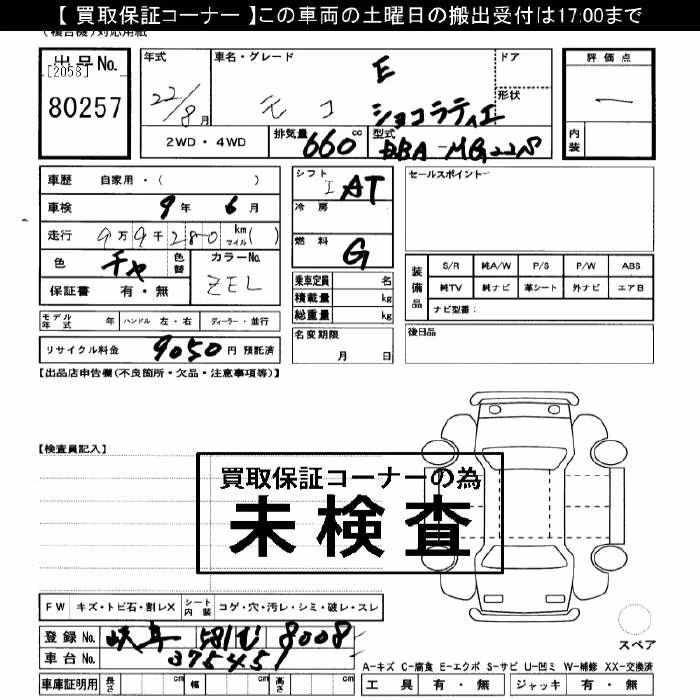 【 買取保証コーナー 】この車両の土曜日の搬出受付は17:00まで
(複合機)対応用紙
出品No.
[2058]
80257
年式 車名・グレード ドア 評価点
22/8月 モコ E ショコラティエ 形状 一
2WD・4WD 排気量 660 cc 型式 DBA-MG22S 内装
車歴 自家用・( )
車検 9年 6月
走行 9万9千280 km マイル( )
色 チャ 色替 カラーNo. ZEL
保証書 有・無
シフト I AT
冷房
燃料 G
乗車定員 名
積載量 kg
総重量 kg
セールスポイント
装備品 S/R 純A/W P/S P/W ABS
純TV 純ナビ 革シート 外ナビ エアB
ナビ型番:
モデル年式 年 ハンドル 左・右 ディーラー・並行
名変期限 月 日
後日品
リサイクル料金 9050円 預託済
【出品店申告欄(不良箇所・欠品・注意事項等)】
【検査員記入】
買取保証コーナーの為
未検査
FW キズ・トビ石・割レX シート内装 コゲ・穴・汚レ・シミ・破レ・スレ
登録No. 岐阜 581む 8008
車台No. 375451
スペア
A-キズ C-腐食 E-エクボ S-サビ U-凹ミ W-補修 XX-交換済
車庫証明用 長さ cm 幅 cm 高さ cm
工具 有・無 ジャッキ 有・無